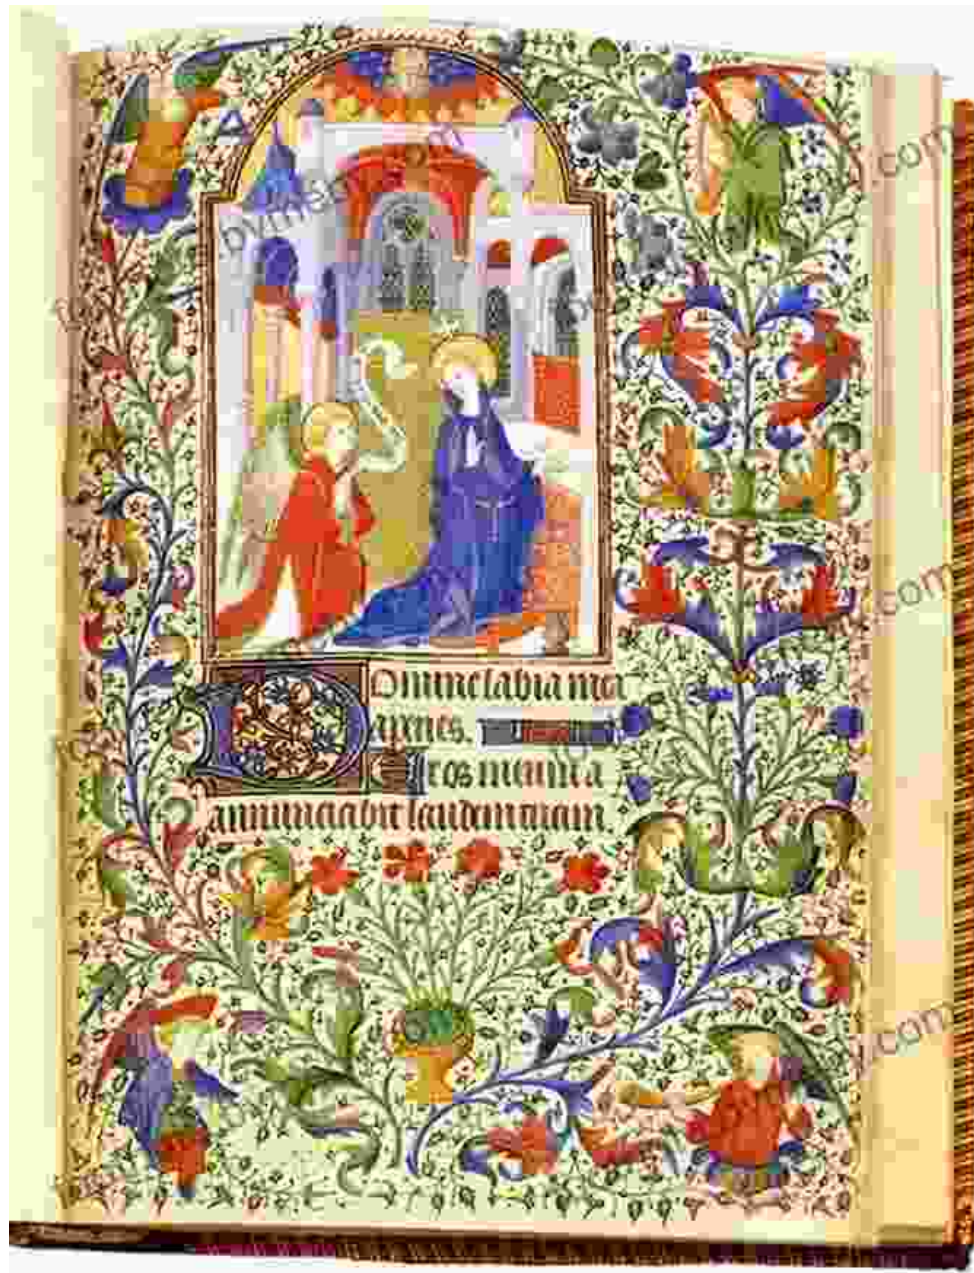 Domine labia mea
aperies.
t os meum a
annunciabit laudem tuam
.com
.com
.com